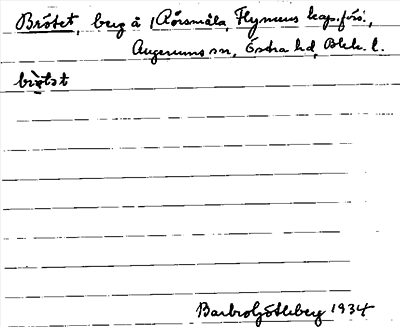 Brötet, berg å Rörsmåla, Flymens kap.förs.,
Augerums sn, Östra hd, Blek. l.
brø̀tət
Barbro Götleberg 1934